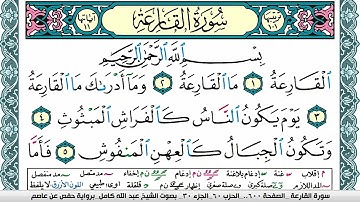 سُورَةُ القَارِعَةِ
بِسْمِ ٱللَّهِ ٱلرَّحْمَٰنِ ٱلرَّحِيمِ
ٱلْقَارِعَةُ ١ مَا ٱلْقَارِعَةُ ٢ وَمَآ أَدْرَىٰكَ مَا ٱلْقَارِعَةُ
٣ يَوْمَ يَكُونُ ٱلنَّاسُ كَٱلْفَرَاشِ ٱلْمَبْثُوثِ ٤
وَتَكُونُ ٱلْجِبَالُ كَٱلْعِهْنِ ٱلْمَنفُوشِ ٥ فَأَمَّا
سورة القارعة . الصفحة ٦٠٠ . الحزب ٦٠ . الجزء ٣٠ . بصوت الشيخ عبد الله كامل . برواية حفص عن عاصم